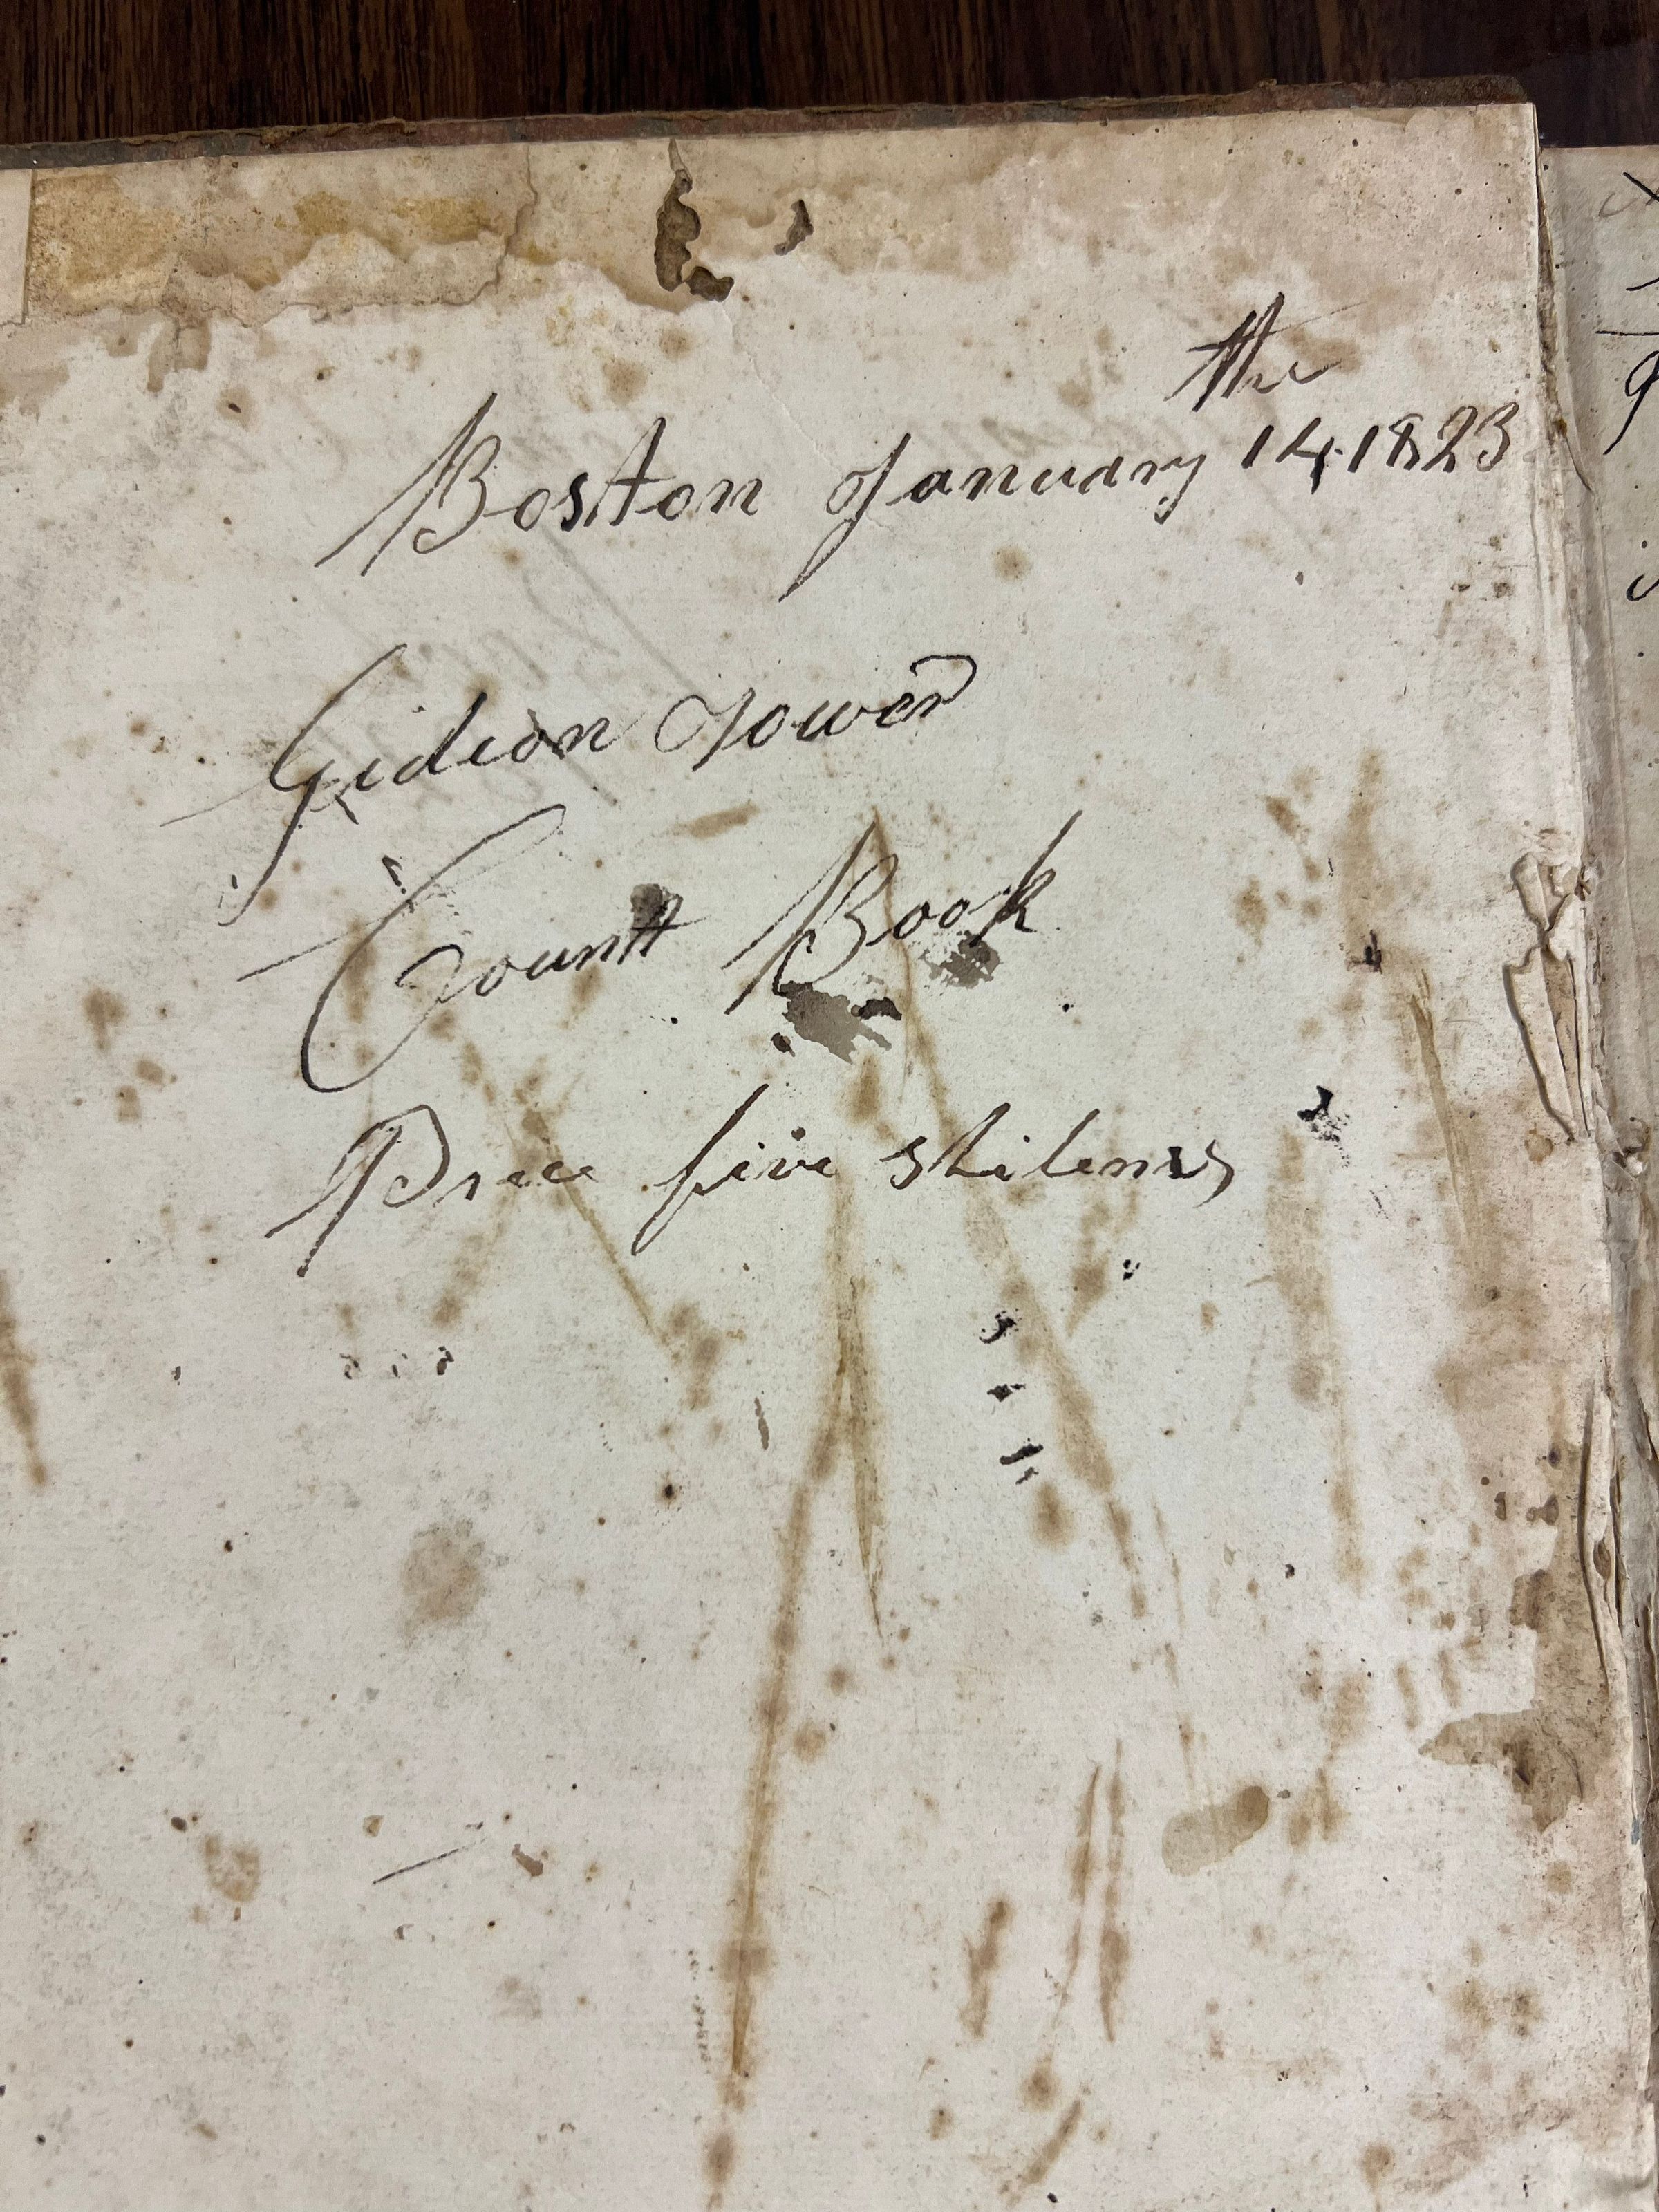 the
Boston January 14. 1823
Gideon Tower
Count Book
Price five shilenes